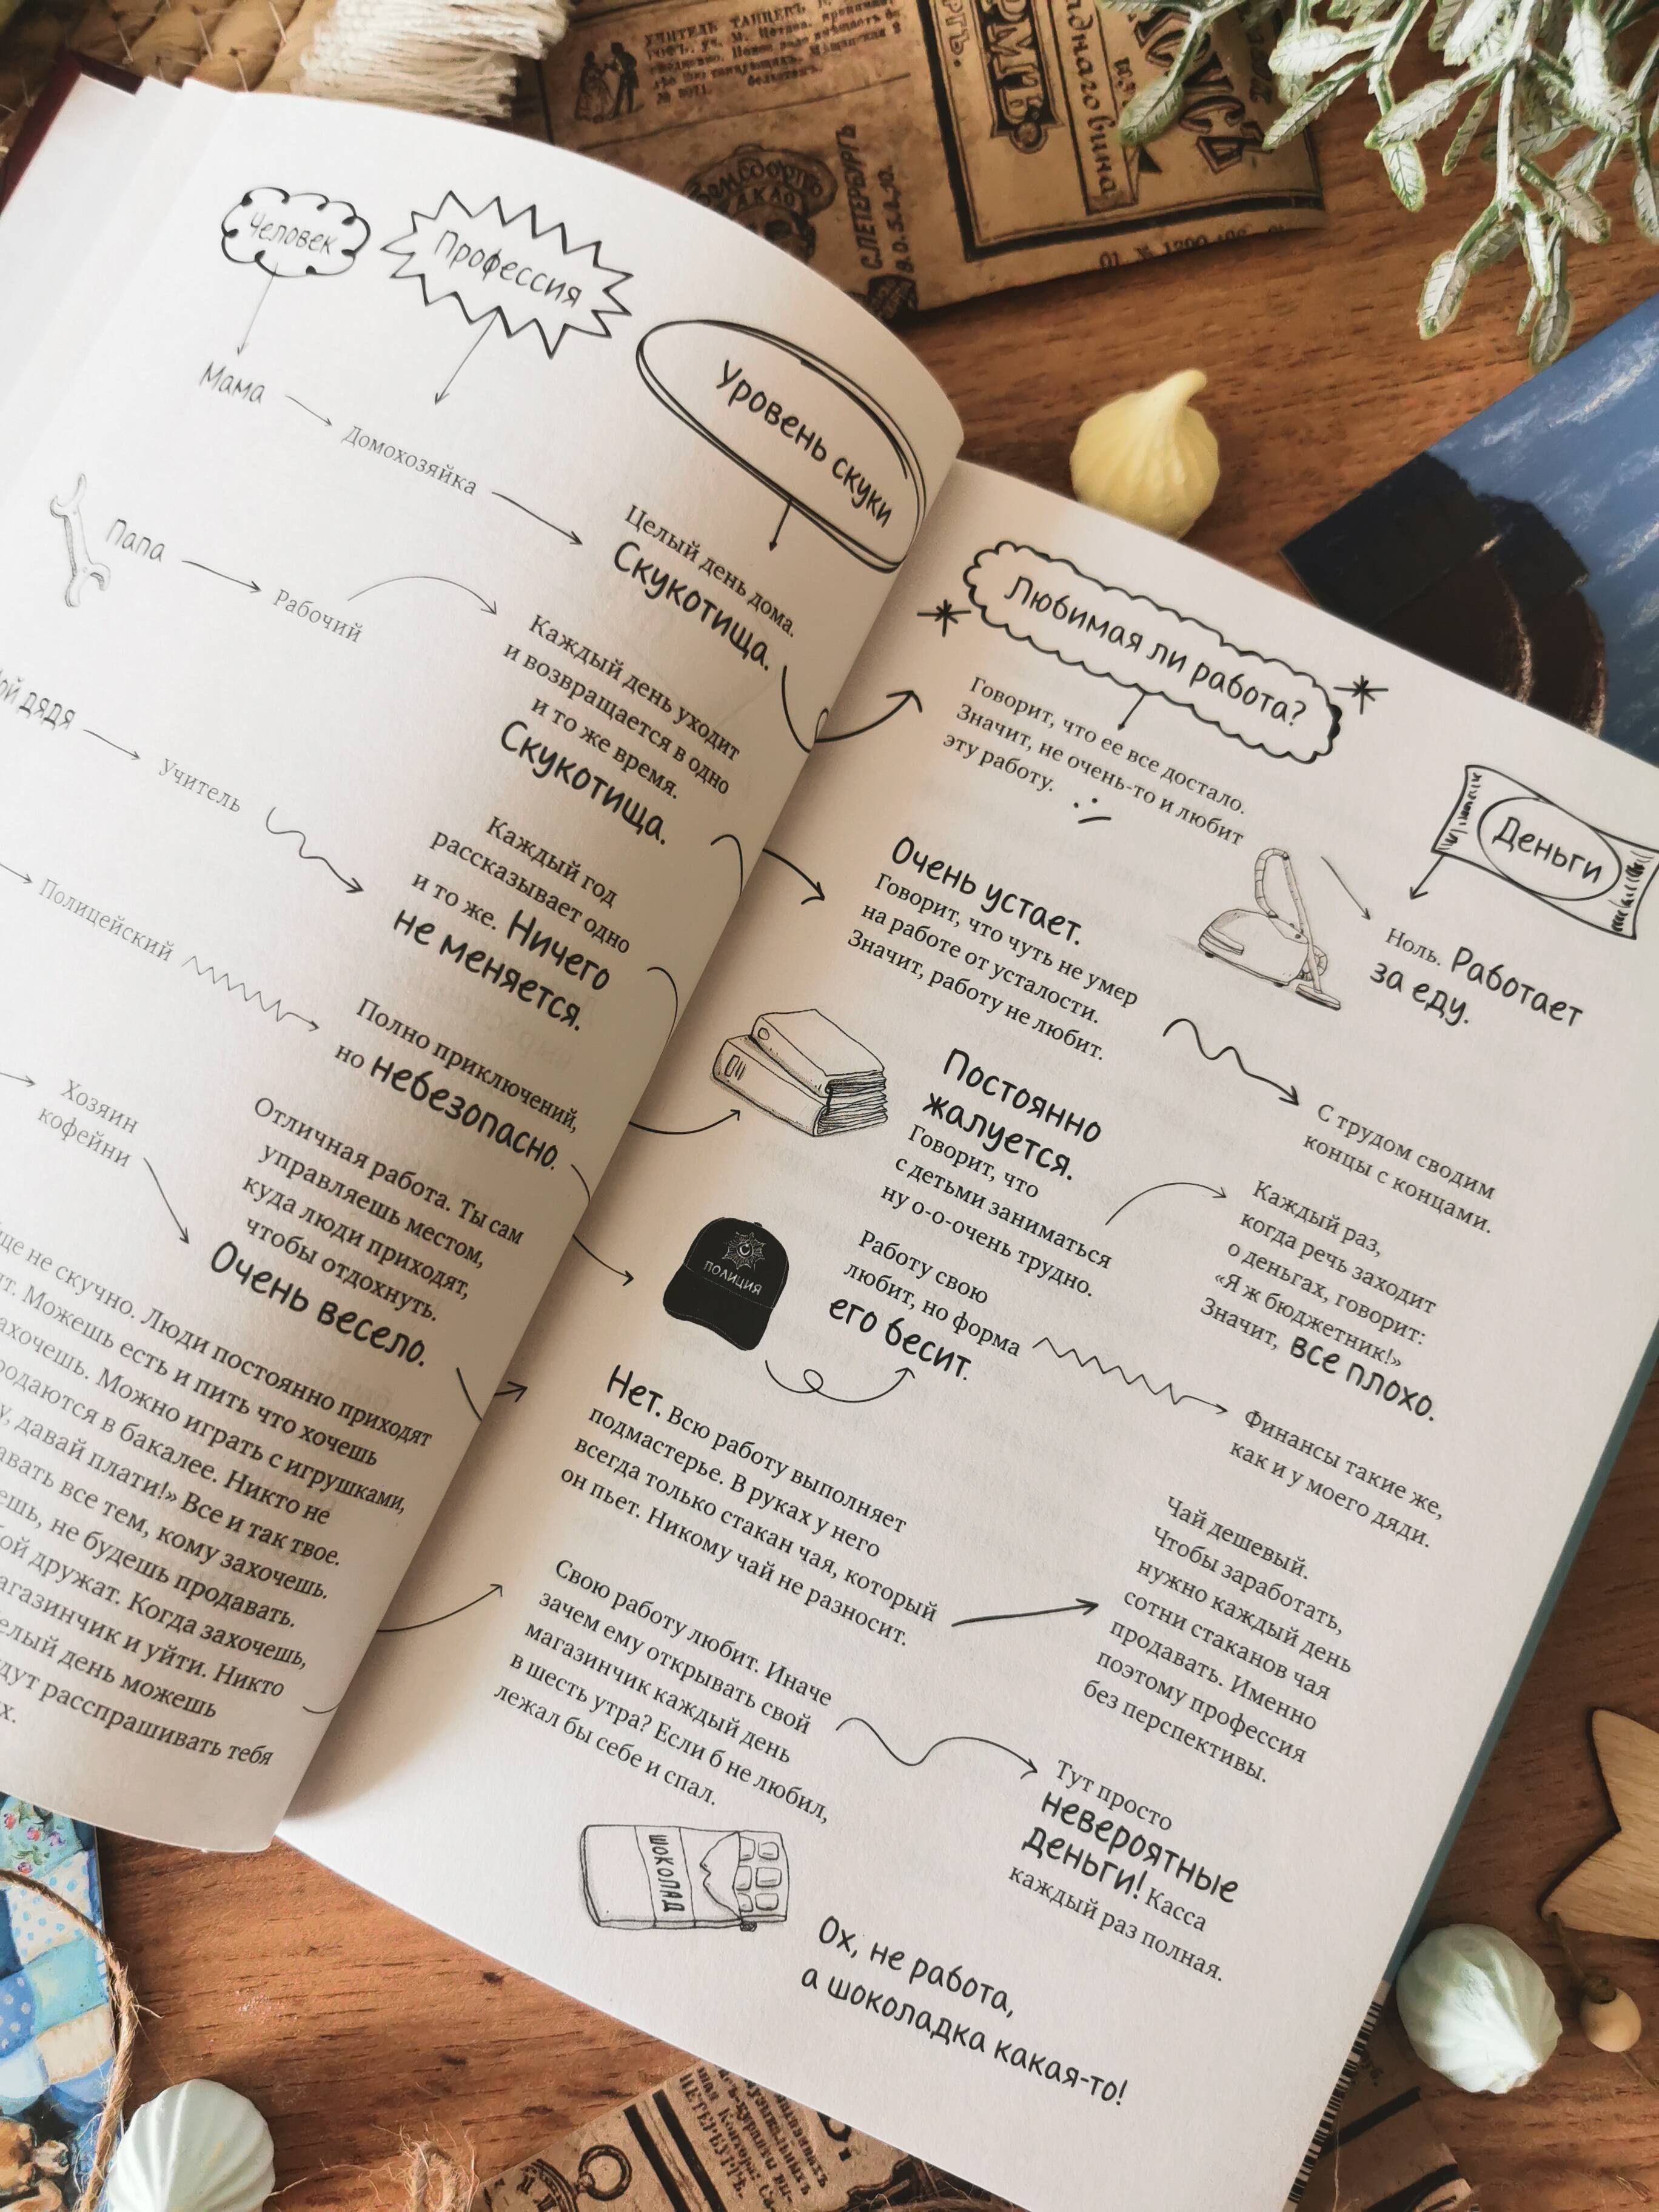 УЧИТЕЛЬ ТАНЦЕВЪ,
С.ПЕТЕРБУРГЪ
В.О. 5 л. д. 10.
Человек
Профессия
Уровень скуки
Мама
Домохозяйка
Целый день дома.
Скукотища.
Папа
Рабочий
Каждый день уходит
и возвращается в одно
и то же время.
Скукотища.
дядя
Учитель
Каждый год
рассказывает одно
и то же. Ничего
не меняется.
Полицейский
Полно приключений,
но небезопасно.
Хозяин
кофейни
Отличная работа. Ты сам
управляешь местом,
куда люди приходят,
чтобы отдохнуть.
Очень весело.
не скучно. Люди постоянно приходят
Можешь есть и пить что хочешь
Можно играть с игрушками,
в бакалее. Никто не
давай плати!» Все и так твое.
все тем, кому захочешь.
не будешь продавать.
дружат. Когда захочешь,
и уйти. Никто
день можешь
расспрашивать тебя
Любимая ли работа?
Говорит, что ее все достало.
Значит, не очень-то и любит
эту работу.
Деньги
Ноль. Работает
за еду.
Очень устает.
Говорит, что чуть не умер
на работе от усталости.
Значит, работу не любит.
С трудом сводим
концы с концами.
Постоянно
жалуется.
Говорит, что
с детьми заниматься
ну о-о-очень трудно.
Каждый раз,
когда речь заходит
о деньгах, говорит:
«Я ж бюджетник!»
Значит, все плохо.
ПОЛИЦИЯ
Работу свою
любит, но форма
его бесит.
Финансы такие же,
как и у моего дяди.
Нет. Всю работу выполняет
подмастерье. В руках у него
всегда только стакан чая, который
он пьет. Никому чай не разносит.
Чай дешевый.
Чтобы заработать,
нужно каждый день
сотни стаканов чая
продавать. Именно
поэтому профессия
без перспективы.
Свою работу любит. Иначе
зачем ему открывать свой
магазинчик каждый день
в шесть утра? Если б не любил,
лежал бы себе и спал.
Тут просто
невероятные
деньги! Касса
каждый раз полная.
ШОКОЛАД
Ох, не работа,
а шоколадка какая-то!